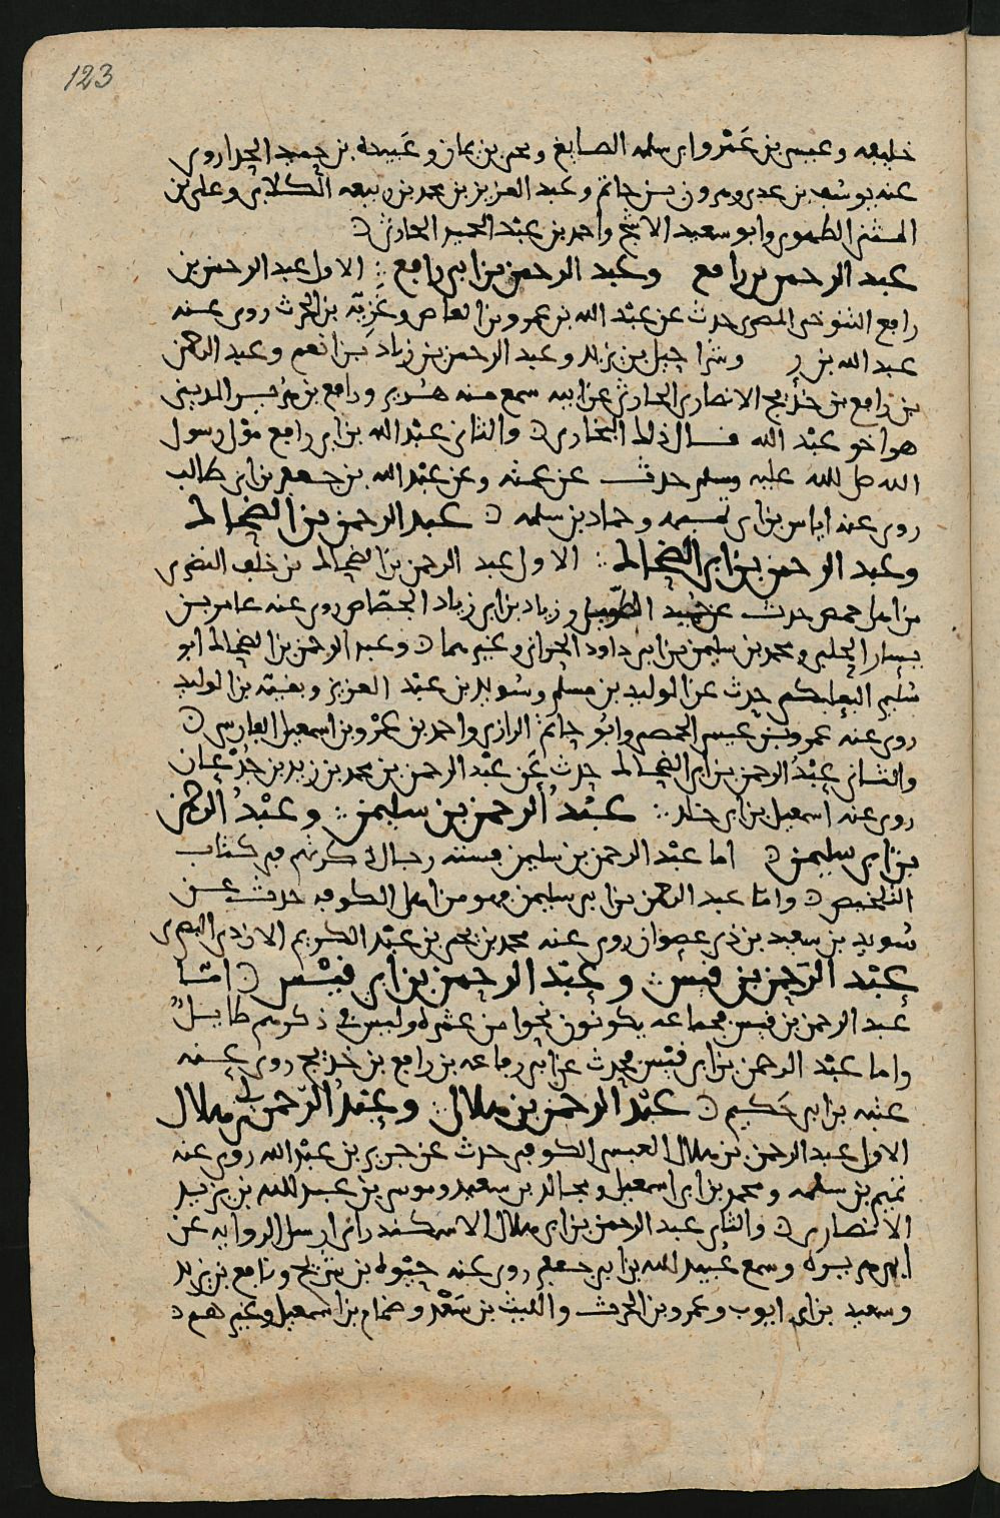 123
خليفه وعيسى بن عَمْرو ابى سلمه الصايغ ويحيى بن يمان وعَبيده بن حميد الحذا روى
عنه يوسف بن عدى وهرون بن حاتم وعبد العزيز بن محمد بن ربيعه الكلابى وعلى بن
المثنى الطهوى وابو سعيد الاشج واحمد بن عبْد الحميد الحارثى
عبد الرحمن بن رافع وعبد الرحمن بن ابى رافع الاول عبد الرحمن بن
رافع التنوخى المصرى حدث عن عبْد الله بن عمرو بن العاص وغَزِيّة بن الحرث روى عنه
عبد الله بن ز وشراحيل بن يزيد وعبد الرحمن بن زياد بن انعم وعبد الرحمن
بن رافع بن خَدِيج الانصارى الحارثى عن ابيه سمع منه هُرير ورافع بن المدينى
هو اخو عبْد الله قال ذلك البخارى والثانى عبْد الله بن ابى رافع مولى رسول
الله صلى الله عليه وسلم حدث عن عمته وعن عبْد الله بن جعفر بن ابى طالب
روى عنه حماد بن سلمه عبد الرحمن بن الضحاك
وعبد الرحمن بن ابى الضحاك الاول عبد الرحمن بن الضحاك بن خلف النضرى
من اهل حمص حدث عن حُميد الطّويل وزياد بن ابى زياد الجصّاص روى عنه عامر بن
يسار الحلبى ومحمد بن سليمن بن ابى داود الحرانى وغيرهما وعبد الرحمن بن الضحاك ابو
سُليم البعلبكى حدث عن الوليد بن مسلم وسُويد بن عبْد العزيز وبقيّه بن الوليد
روى عنه عمرو بن عيسى الحمصى وابو حاتم الرازى واحمد بن عمْرو بن اسمعيل الفارسى
والثانى عبْدُ الرحمن بن ابى الضحاك حدث عَن عبْد الرحمن بن محمد بن زيد بن جُدْعان
روى عنه اسمعيل بن ابى خالد عبْدُ الرحمن بن سليمن وعبْدُ الرحمن
بن ابى سليمن اما عبْد الرحمن بن سليمن فستة رجال ذكرتهم فى كتاب
التلخيص وامّا عبد الرحمن بن ابى سليمن فهو من اهل الكوفه حدث عن
سُويد بن سعيد بن ذى عصوان روى عنه محمد بن يحيى بن عبْد الكريم الازدى البصرى
عبْد الرَحمن بن قيس وعبْد الرحمن بن ابى قيْس امّا
عبد الرحمن بن قيس فجماعه يكونون نحوا من عشره وليس فى ذكرهم طايلٌ
واما عبْد الرحمن بن ابى قيْس فحدث عن ابى رفاعه بن رافع بن خديج روى عنه
عتبه بن ابى حَكيم عبْد الرحمن بن هلال وعبْدُ الرّحمن بن ابى هلال
الاول عبد الرحمن بن هلال العبسى الكوفى حدث عن جرير بن عبْد الله روى عنه
تميم بن سلمه ومحمد بن ابى اسمعيل ومجالد بن سعيد وموسى بن عبد الله بن يزيد
الانصارى والثانى عبد الرحمن بن ابى هلال الاسكندرانى ارسل الروايه عن
ابى هريره وسمع عُبيد الله بن ابى جعفر روى عنه حيْوه بن شريْح ونافع بن يزيد
وسعيد بن ابى ايوب وعمرو بن الحرث والليث بن سَعْد وضمام بن اسمعيل وغيرهم